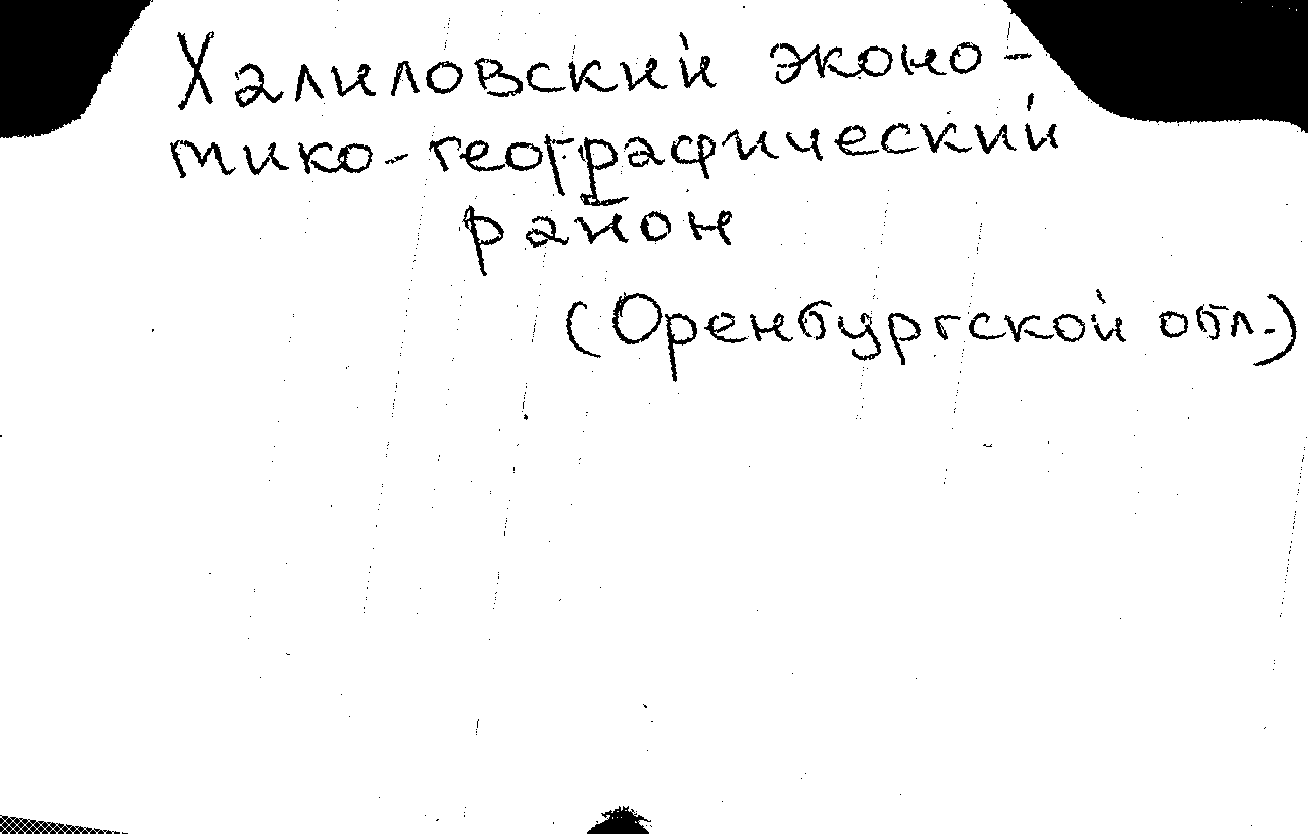 Халиловский эконо-
мико-географический
район
(Оренбургской обл.)